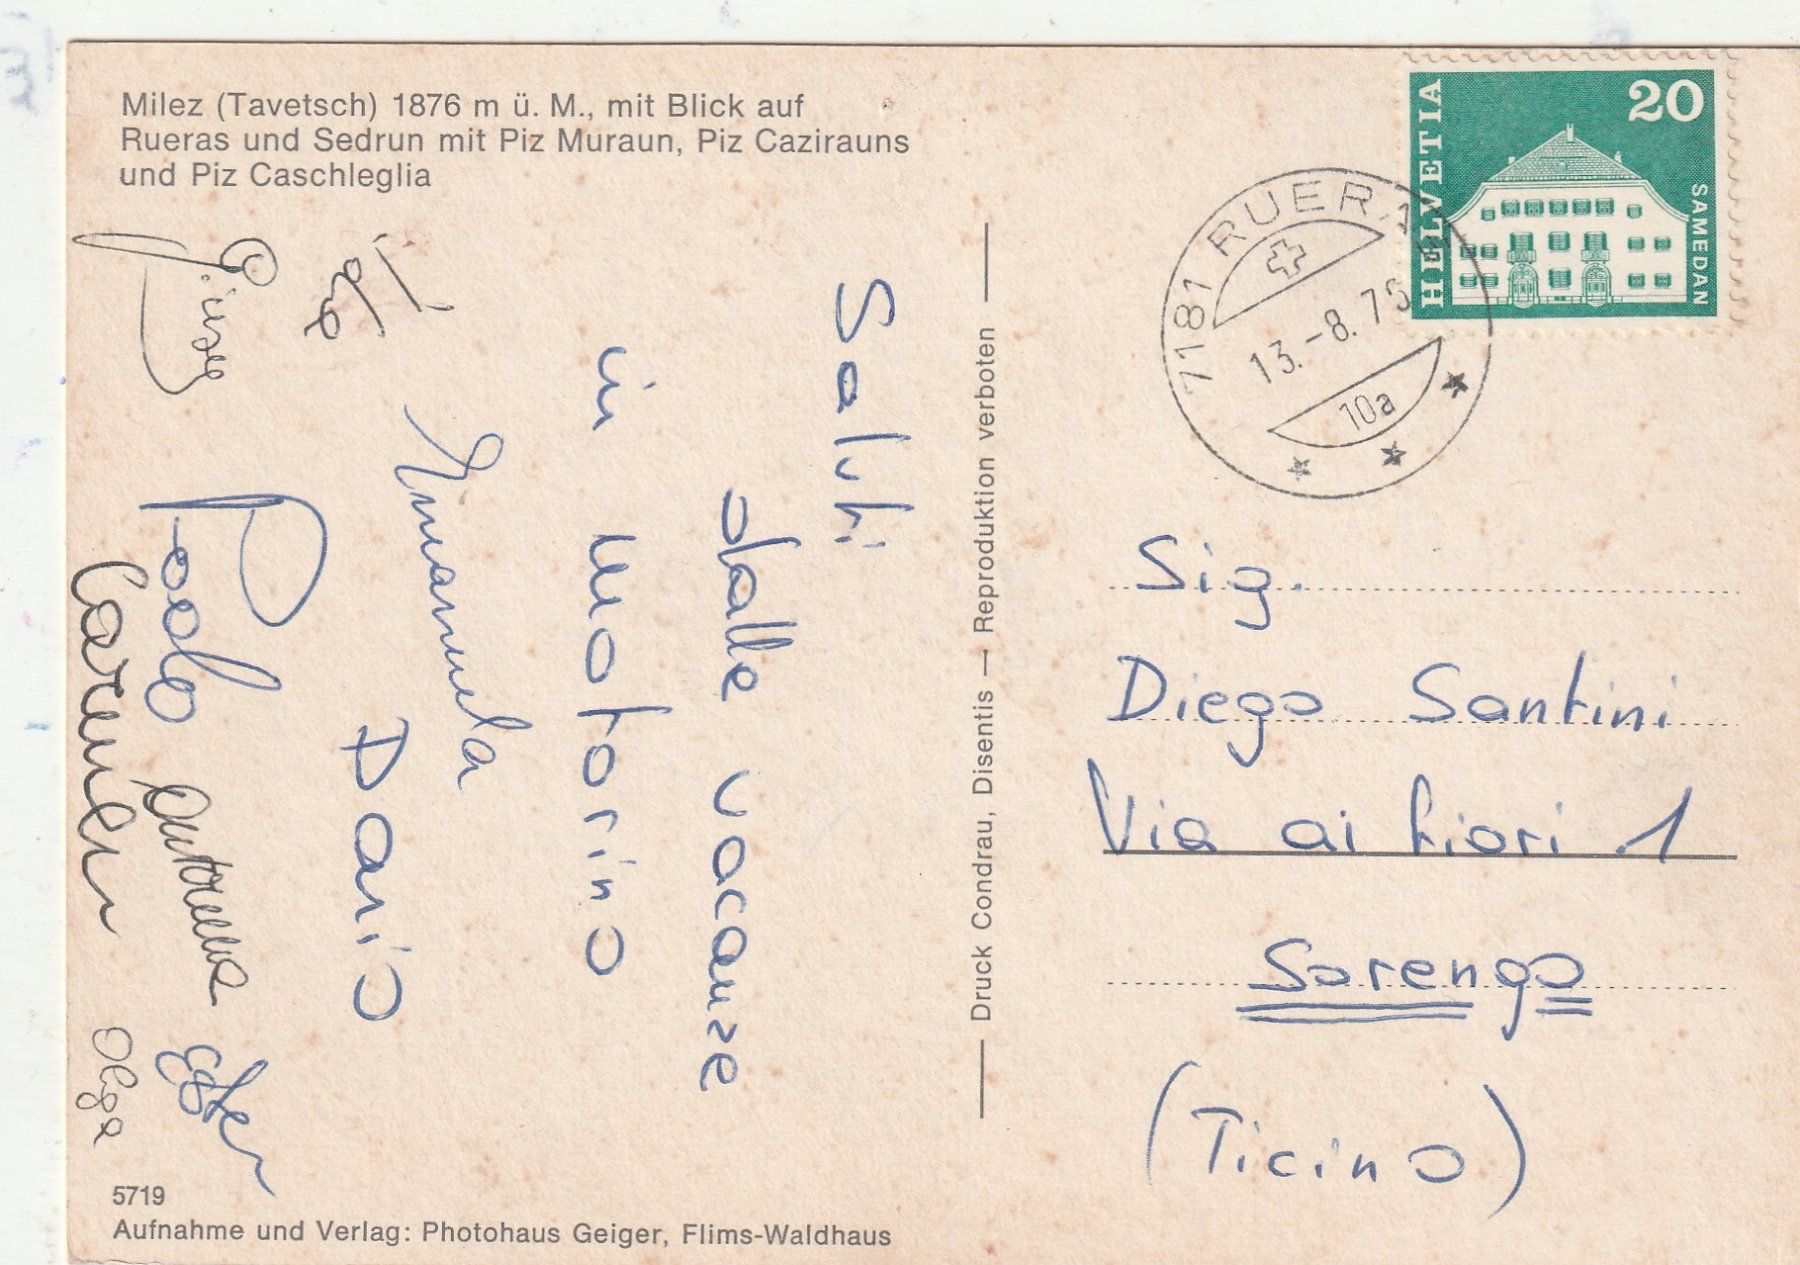 Milez (Tavetsch) 1876 m ü. M., mit Blick auf
Rueras und Sedrun mit Piz Muraun, Piz Cazirauns
und Piz Caschleglia
HELVETIA
20
SAMEDAN
7181 RUERAS
13.-8.75
10a
Saluti
dalle vacanze
in Motorino
Emanuela
Dario
Paolo
Carmen
Ester
Olga
Druck Condrau, Disentis — Reproduktion verboten
Sig.
Diego Santini
Via ai fiori 1
Sorengo
(Ticino)
5719
Aufnahme und Verlag: Photohaus Geiger, Flims-Waldhaus